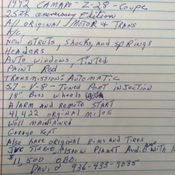 1992 CAMARO - Z-28 - Coupe
25th anniversary Edition
All original / MOTOR & TRANS
A/C
New struts, shocks, and springs
HEADERS
Auto windows, Tinted
Paint Red
Transmission: Automatic
5.7 - V-8 - Tuned Port injection
18" Boss wheels
Alarm and Remote Start
41,422 original miles
Well maintained
Garage Kept
Also have original Rims and Tires
$11,500 OBO.
936-433-9035